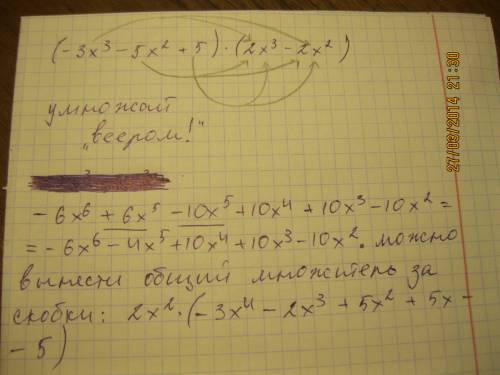 (-3x³ - 5x² + 5) · (2x³ - 2x²)
умножай
„веером!"
- 6x⁶ + 6x⁵ - 10x⁵ + 10x⁴ + 10x³ - 10x² =
= - 6x⁶ - 4x⁵ + 10x⁴ + 10x³ - 10x². можно
вынести общий множитель за
скобки: 2x² · (-3x⁴ - 2x³ + 5x² + 5x -
- 5)
27/09/2014 21:30